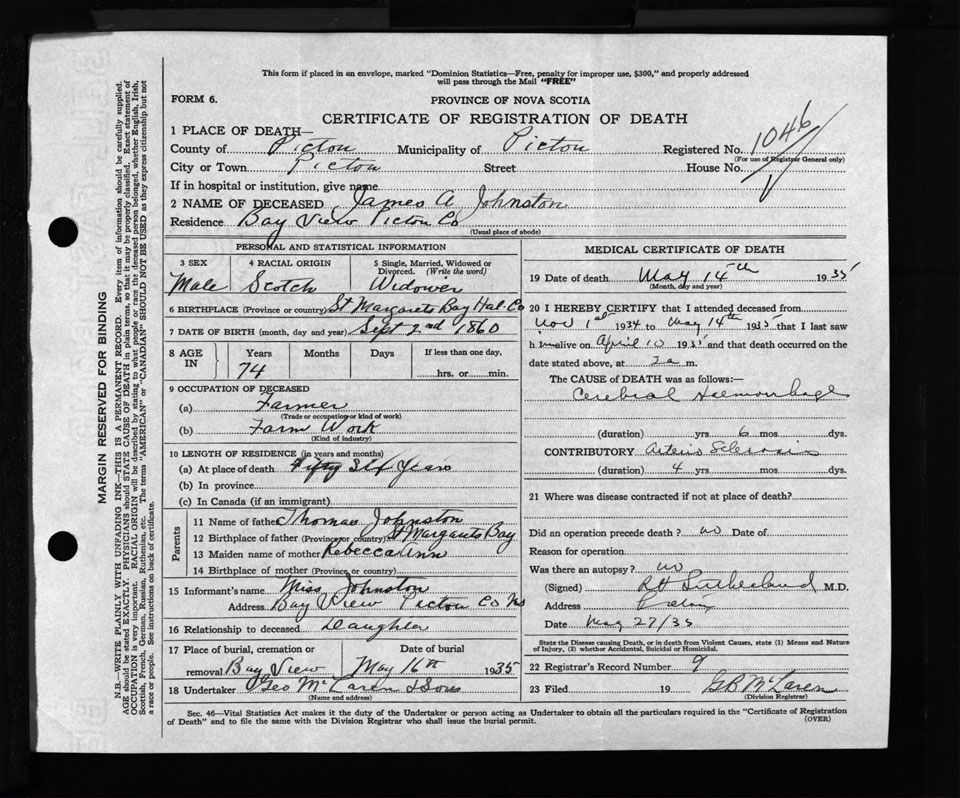 This form if placed in an envelope, marked "Dominion Statistics—Free, penalty for improper use, $300," and properly addressed
will pass through the Mail "FREE"
FORM 6.
PROVINCE OF NOVA SCOTIA
CERTIFICATE OF REGISTRATION OF DEATH
1 PLACE OF DEATH—
County of Picton Municipality of Picton Registered No. 1046
(For use of Registrar General only)
City or Town Picton Street House No.
If in hospital or institution, give name
2 NAME OF DECEASED James A Johnston
Residence Bay View Picton Co
(Usual place of abode)
PERSONAL AND STATISTICAL INFORMATION
3 SEX 4 RACIAL ORIGIN 5 Single, Married, Widowed or
Divorced. (Write the word)
Male Scotch Widower
6 BIRTHPLACE (Province or country) St Margarets Bay Hal. Co
7 DATE OF BIRTH (month, day and year) Sept 2nd 1860
8 AGE IN Years Months Days If less than one day,
74 hrs. or min.
9 OCCUPATION OF DECEASED
(a) Farmer
(Trade or occupation or kind of work)
(b) Farm Work
(Kind of industry)
10 LENGTH OF RESIDENCE (in years and months)
(a) At place of death Fifty Six Years
(b) In province
(c) In Canada (if an immigrant)
Parents
11 Name of father Thomas Johnston
12 Birthplace of father (Province or country) St Margarets Bay
13 Maiden name of mother Rebecca
14 Birthplace of mother (Province, or country)
15 Informant's name Miss Johnston
Address Bay View Picton Co NS
16 Relationship to deceased Daughter
17 Place of burial, cremation or Date of burial
removal Bay View May 16th 1935
18 Undertaker Geo McLaren & Sons
(Name and address)
MEDICAL CERTIFICATE OF DEATH
19 Date of death May 14th 1935
(Month, day and year)
20 I HEREBY CERTIFY that I attended deceased from
Nov 1st 1934 to May 14th 1935 that I last saw
h im alive on April 10 1935 and that death occurred on the
date stated above, at 2 a m.
The CAUSE OF DEATH was as follows:—
Cerebral Haemorrhage
(duration) yrs 6 mos dys.
CONTRIBUTORY Arterio Sclerosis
(duration) 4 yrs. mos. dys.
21 Where was disease contracted if not at place of death?
Did an operation precede death? no Date of
Reason for operation
Was there an autopsy? no
(Signed) RH Sutherland M.D.
Address
Date May 27/35
State the Disease causing Death, or in death from Violent Causes, state (1) Means and Nature
of Injury, (2) whether Accidental, Suicidal or Homicidal.
22 Registrar's Record Number 9
23 Filed 19 GB McLaren
(Division Registrar)
Sec. 46—Vital Statistics Act makes it the duty of the Undertaker or person acting as Undertaker to obtain all the particulars required in the "Certificate of Registration
of Death" and to file the same with the Division Registrar who shall issue the burial permit. (OVER)
MARGIN RESERVED FOR BINDING
N.B.—WRITE PLAINLY WITH UNFADING INK—THIS IS A PERMANENT RECORD. Every item of information should be carefully supplied.
AGE should be stated EXACTLY. PHYSICIANS should state CAUSE OF DEATH in plain terms, so that it may be properly classified. Exact statement of
OCCUPATION is very important. RACIAL ORIGIN will be described by stating to what people or race the deceased person belonged, whether English, Irish,
Scottish, French, German, Russian, Ruthenian, etc. The terms "AMERICAN" or "CANADIAN" SHOULD NOT BE USED as they express citizenship but not
a race or people. See instructions on back of certificate.